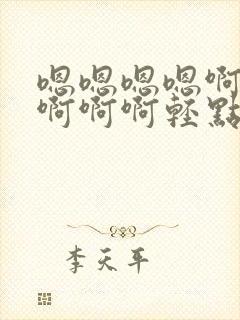 嗯嗯嗯嗯啊
啊啊啊輕點
李天平